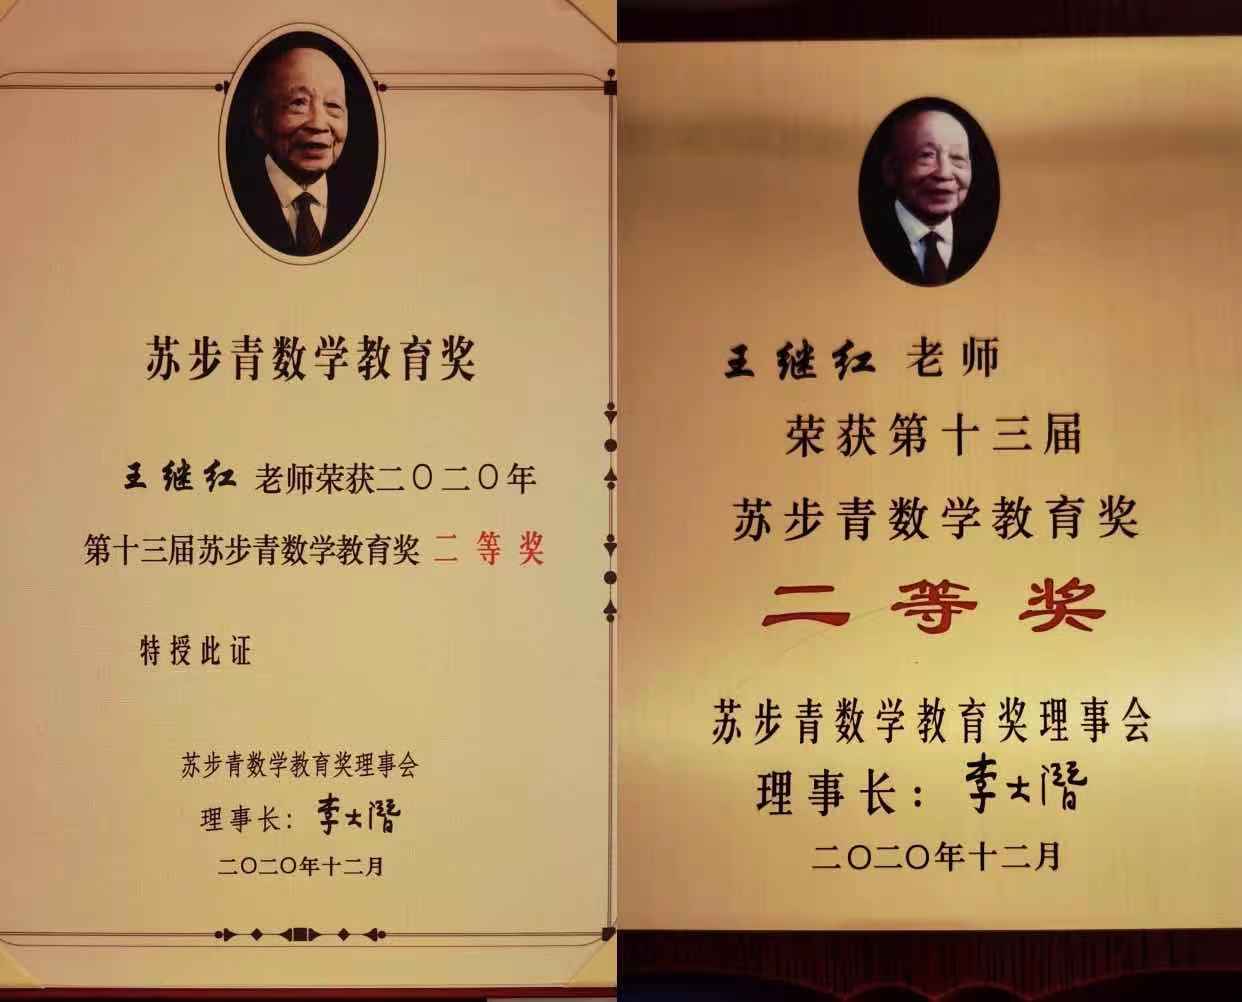 苏步青数学教育奖
王继红 老师荣获二〇二〇年
第十三届苏步青数学教育奖 二等奖
特授此证
苏步青数学教育奖理事会
理事长：李大潜
二〇二〇年十二月
王继红 老师
荣获第十三届
苏步青数学教育奖
二等奖
苏步青数学教育奖理事会
理事长：李大潜
二〇二〇年十二月